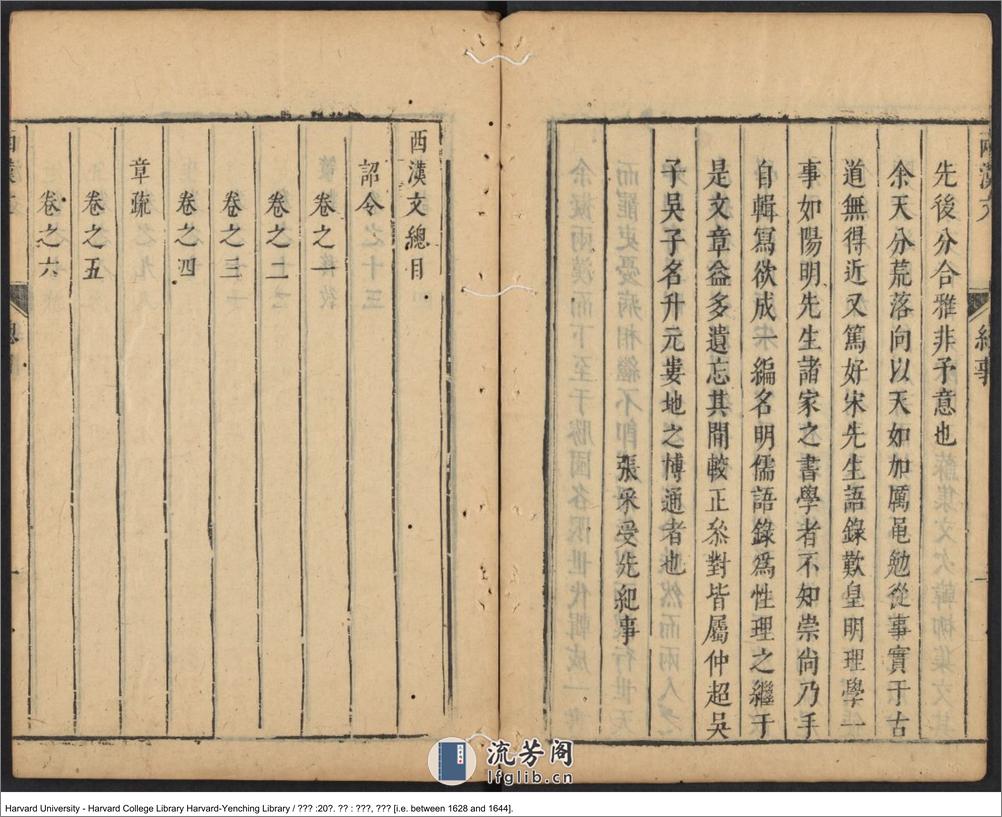 先後分合雅非予意也
余天分荒落向以天如加厲黽勉從事實于古
道無得近又篤好宋先生語錄歎皇明理學一
事如陽明先生諸家之書學者不知崇尚乃手
自輯寫欲成一編名明儒語錄為性理之繼于
是文章益多遺忘其間較正叅對皆屬仲超吳
子吳子名升元婁地之博通者也
張采受先紀事
西漢文總目
詔令
卷之一
卷之二
卷之三
卷之四
章疏
卷之五
卷之六
流芳阁
lfglib.cn
Harvard University - Harvard College Library Harvard-Yenching Library / ??? :20?. ?? : ???, ??? [i.e. between 1628 and 1644].